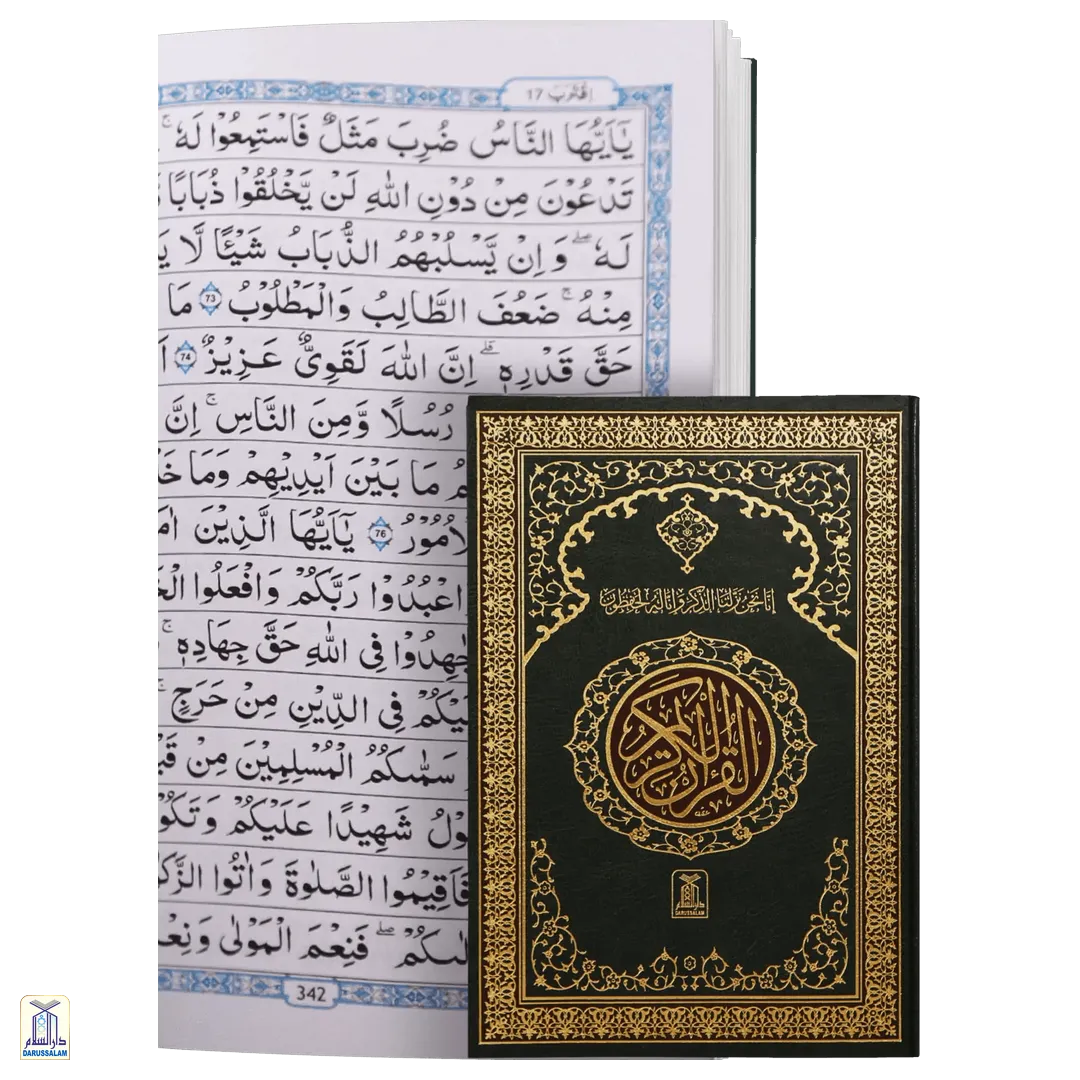 اِقْتَرَبَ 17
يٰۤاَيُّهَا النَّاسُ ضُرِبَ مَثَلٌ فَاسْتَمِعُوْا لَهٗ ؕ
تَدْعُوْنَ مِنْ دُوْنِ اللّٰهِ لَنْ يَّخْلُقُوْا ذُبَابًا
لَهٗ ۖ وَ اِنْ يَّسْلُبْهُمُ الذُّبَابُ شَيْـًٔا لَّا
مِنْهُ ۚ ضَعُفَ الطَّالِبُ وَالْمَطْلُوْبُ 73 مَا
حَقَّ قَدْرِهٖ ۗ اِنَّ اللّٰهَ لَقَوِيٌّ عَزِيْزٌ 74
رُسُلًا وَّمِنَ النَّاسِ ۚ اِنَّ
مَا بَيْنَ اَيْدِيْهِمْ وَمَا
76 يٰۤاَيُّهَا الَّذِيْنَ
اعْبُدُوْا رَبَّكُمْ وَافْعَلُوا
فِى اللّٰهِ حَقَّ جِهَادِهٖ ۚ
فِى الدِّيْنِ مِنْ حَرَجٍ ۚ
سَمّٰىكُمُ الْمُسْلِمِيْنَ مِنْ
شَهِيْدًا عَلَيْكُمْ وَتَكُوْ
فَاَقِيْمُوا الصَّلٰوةَ وَاٰتُوا الزَّكٰ
فَنِعْمَ الْمَوْلٰى وَنِعْ
342
اِنَّا نَحْنُ نَزَّلْنَا الذِّكْرَ وَاِنَّا لَهٗ لَحٰفِظُوْنَ
القرآن الكريم
دار السلام
DARUSSALAM
دار السلام
DARUSSALAM